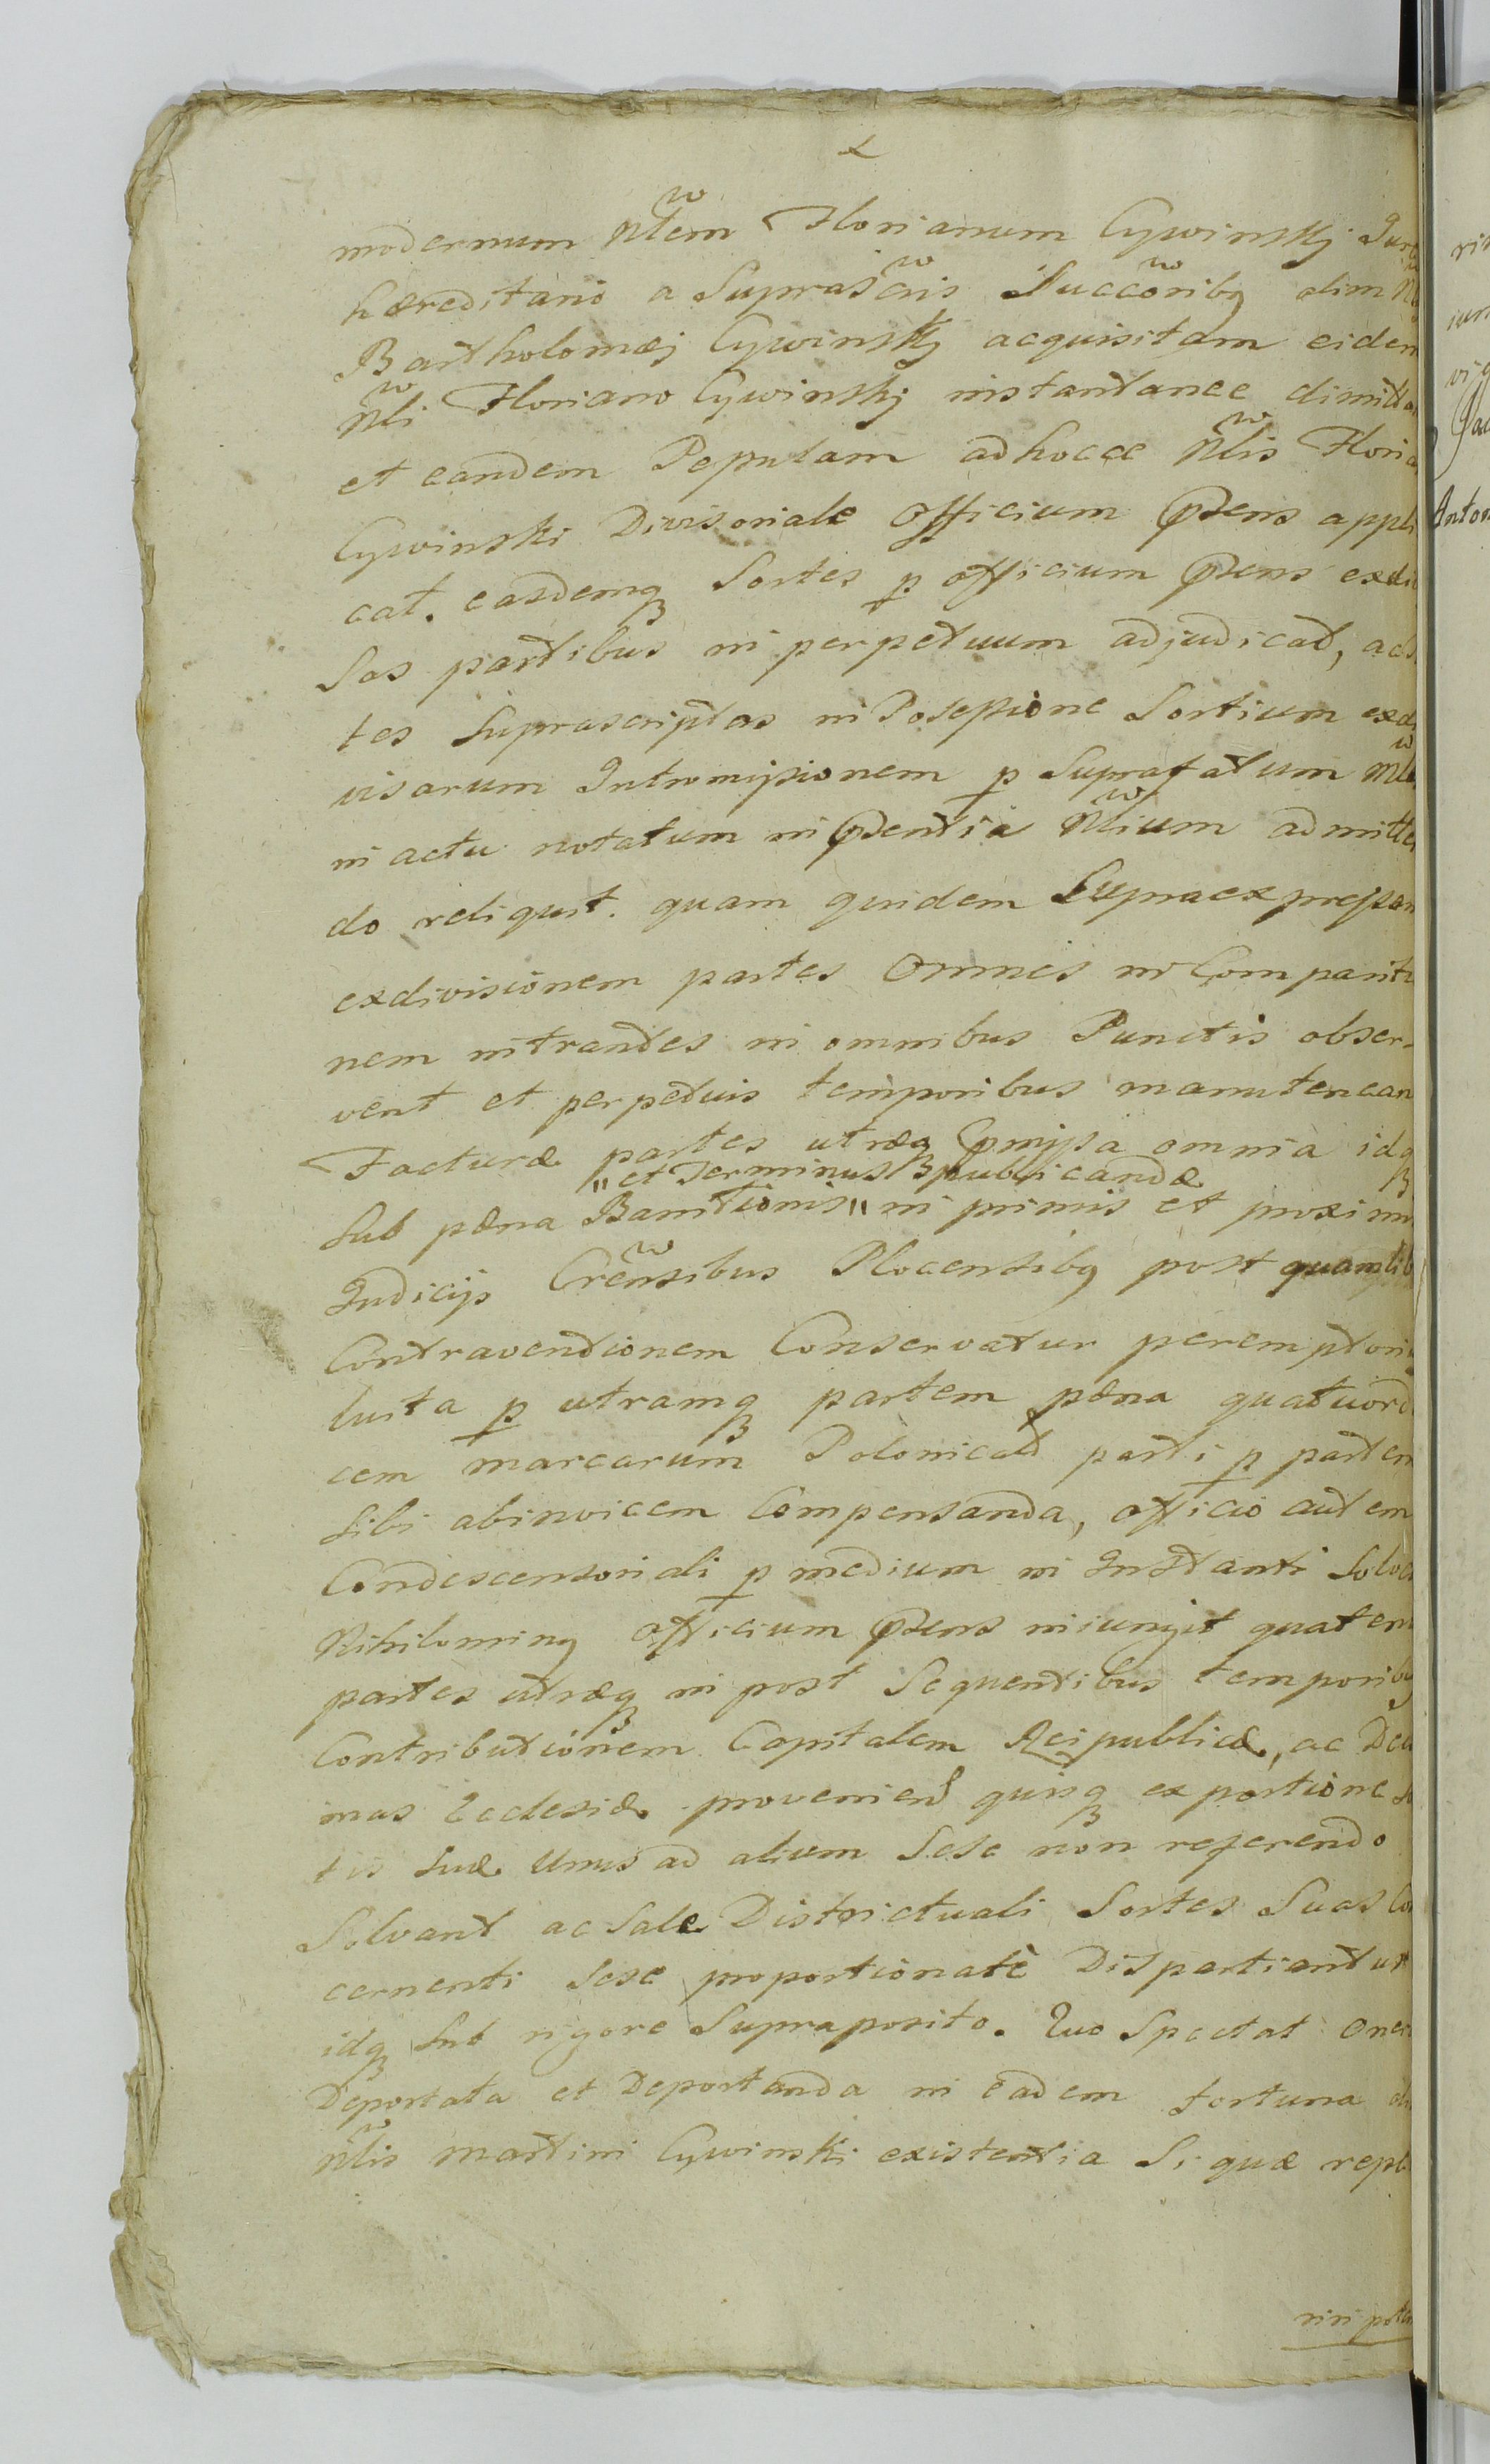 modernum Nlem Florianum Cywinskj Jure
hæreditario a Suprascris Succoribq olim
Bartholomæj Cywinskj acquisitam eidem
Nli Floriano Cywinskj instantanee
et eandem Peputam ad hocce Nlis
Cywinski Divisoriale Officium Pdens appli
cat. easdemq Sortes p officium Pdens
Sas partibus in perpetuum adjudicat,
tes Suprascriptas in Possessione Sortium
visarum Intromissionem p Suprafatum
in actu notatum in Pdentia Nlium
do reliquit. quam quidem Supraexpressam
exdivisionem partes Omnes in
nem intrantes in omnibus Punctis obser-
vent et perpetuis temporibus manuteneant
Facturæ partes utræq Pmissa omnia idq
" et Terminus publicandæ
Sub pæna Banitionis " in primis et
Judicijs Crensibus Plocensibq post quamlib
Contraventionem Conservatur
luita p utramq partem pæna
cem marcarum Polonical parti p partem
Sibi abinvicem Compensanda, officio autem
Condescensoriali p medium in Instanti
Nihilominq officium Pdens iniungit
partes utræq in post Sequentibus temporibq
Contributionem Capitalem Reipublicæ, ac
mas Ecclesiæ quisq ex portione
tis Suæ Unus ad alium Sese non referendo
Solvant ac Sale Districtuali Sortes Suas
cernenti Sese proportionatè Dispartiantur
idq Sub rigore Supraposito. Quo Spectat
Deportata et Deportanda in eadem fortuna
Nlis Martini Cywinski existentia Si quæ